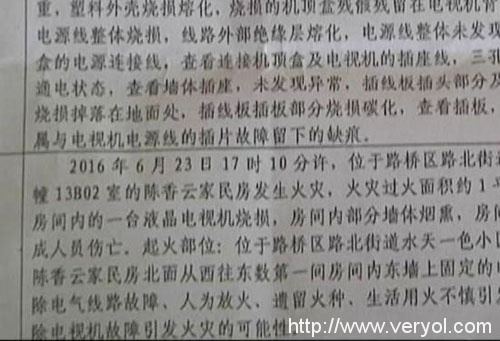 重，塑料外壳烧损熔化，烧损的机顶盒残骸残留在电视机背
电源线整体烧损，线路外部绝缘层熔化，电源线整体未发现
盒的电源连接线，查看连接机顶盒及电视机的插座线，三孔
通电状态，查看墙体插座，未发现异常，插线板插头部分及
烧损掉落在地面处，插线板插板部分烧损碳化，查看插板，
属与电视机电源线的插片故障留下的缺痕．
2016 年 6 月 23 日 17 时 10 分许，位于路桥区路北街道
幢 13B02 室的陈香云家民房发生火灾，火灾过火面积约 1 平
房间内的一台液晶电视机烧损，房间内部分墙体烟熏，房
成人员伤亡．起火部位：位于路桥区路北街道水天一色小区
陈香云家民房北面从西往东数第一间房间内东墙上固定的电
除电气线路故障、人为放火、遗留火种、生活用火不慎引发
除电视机故障引发火灾的可能性
http://www.veryol.com